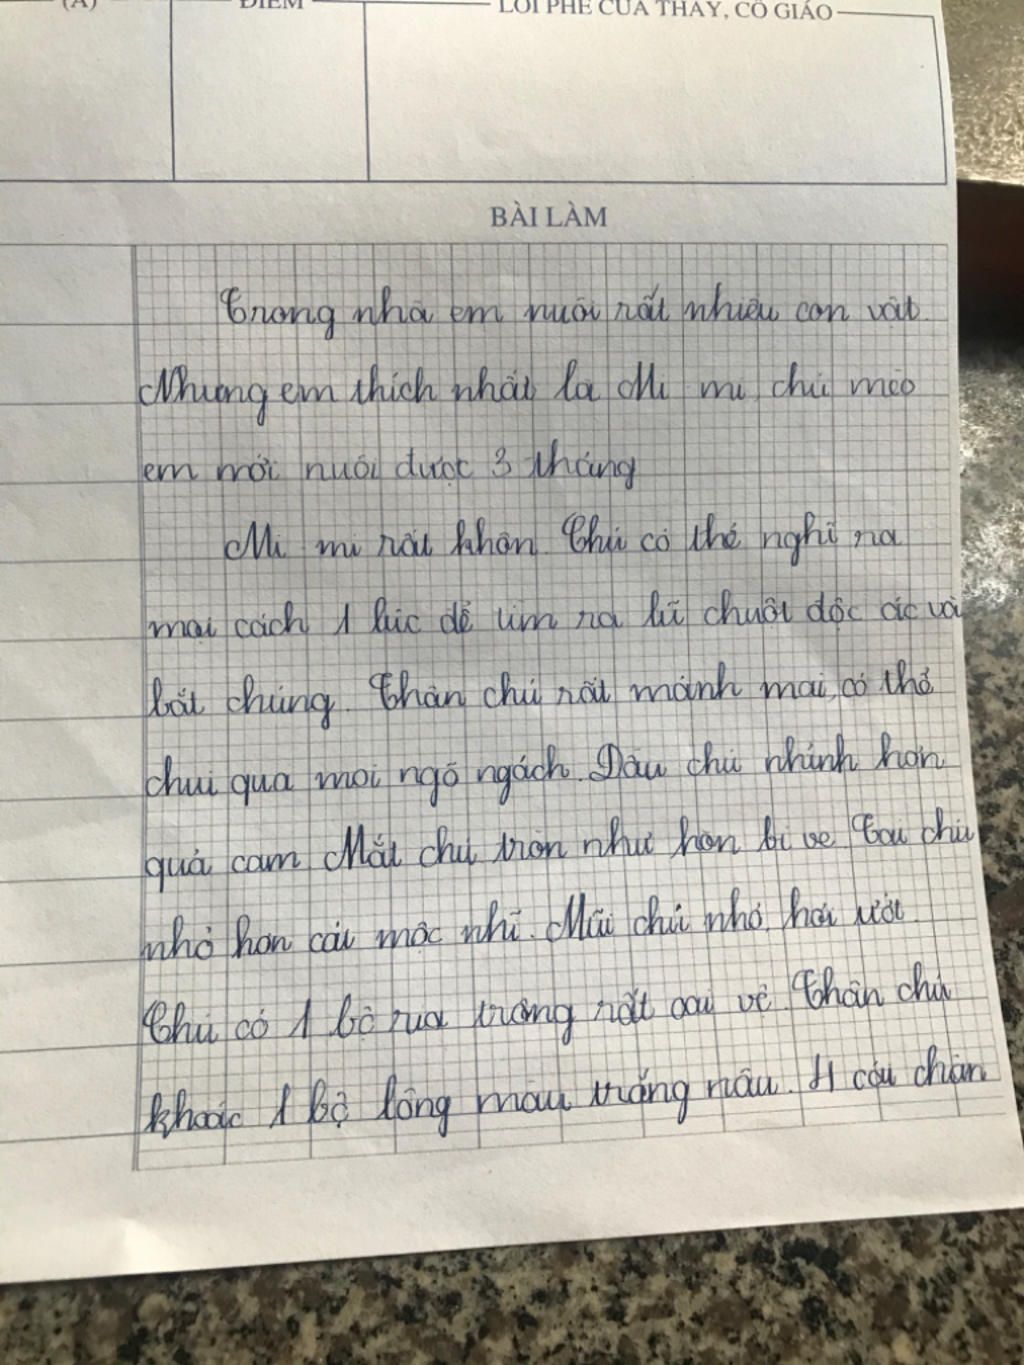 (A)
ĐIỂM
LỜI PHÊ CỦA THẦY, CÔ GIÁO
BÀI LÀM
Trong nhà em nuôi rất nhiều con vật.
Nhưng em thích nhất là Mi mi, chú mèo
em mới nuôi được 3 tháng
Mi mi rất khôn. Chú có thể nghĩ ra
mọi cách 1 lúc để tìm ra lũ chuột độc ác và
bắt chúng. Thân chú rất mảnh mai, có thể
chui qua mọi ngõ ngách. Đầu chú nhỉnh hơn
quả cam. Mắt chú tròn như hòn bi ve. Tai chú
nhỏ hơn cái mộc nhĩ. Mũi chú nhỏ, hơi ướt.
Chú có 1 bộ rua trông rất oai vệ. Thân chú
khoác 1 bộ lông màu trắng nâu. 4 cái chân